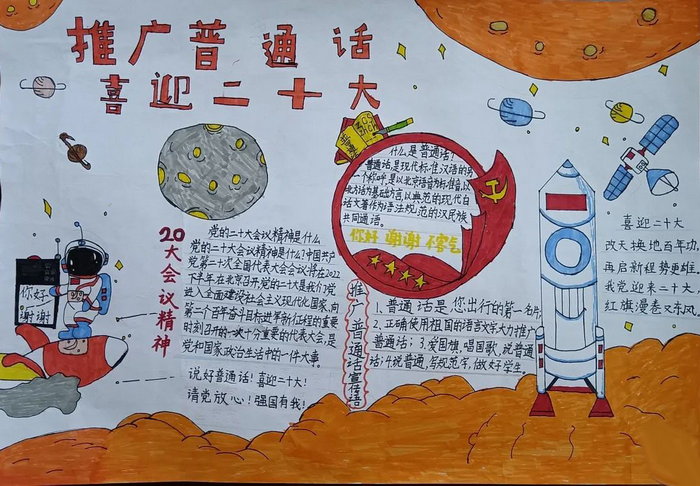 推广普通话
喜迎二十大
你好
谢谢
20大会议精神
党的二十大会议精神是什么
党的二十大会议精神是什么?中国共产
党第二十次全国代表大会会议将在2022
下半年在北京召开,党的二十大是我们党
进入全面建设社会主义现代化国家,向
第二个百年奋斗目标进军新征程的重要
时刻召开的一次十分重要的代表大会,是
党和国家政治生活中的一件大事。
说好普通话!喜迎二十大!
请党放心!强国有我!
什么是普通话!
普通话,是现代标准汉语的另
一个称呼,是以北京语音为标准音,以
北方话为基础方言,以典范的现代白
话文著作为语法规范的汉民族
共同通语。
你好 谢谢 不客气
推广普通话宣传语
1.普通话是您出行的第一名片
2.正确使用祖国的语言文字大力推广
普通话;3.爱国旗,唱国歌,说普通
话;4.说普通,写规范字,做好学生。
喜迎二十大
改天换地百年功,
再启新程势更雄。
我党迎来二十大,
红旗漫卷又东风。